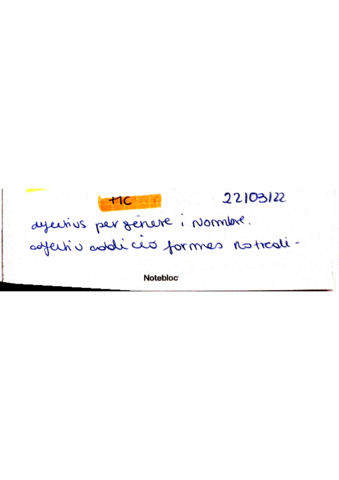 +1C 22/03/22
adjectius per gènere i Nombre.
adjectiu addició formes
Notebloc